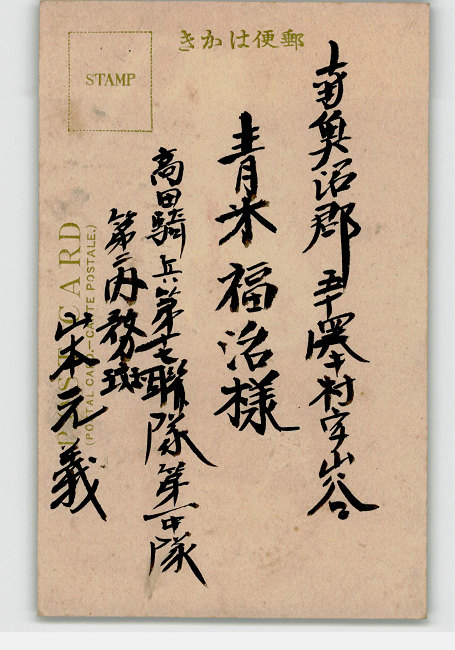 郵便はかき
STAMP
POST CARD
(POSTAL CARD.—CARTE POSTALE.)
南魚沼郡五十澤村字山谷
青米福治様
高田騎兵第十七聯隊第一中隊
第二内務班
山本元義